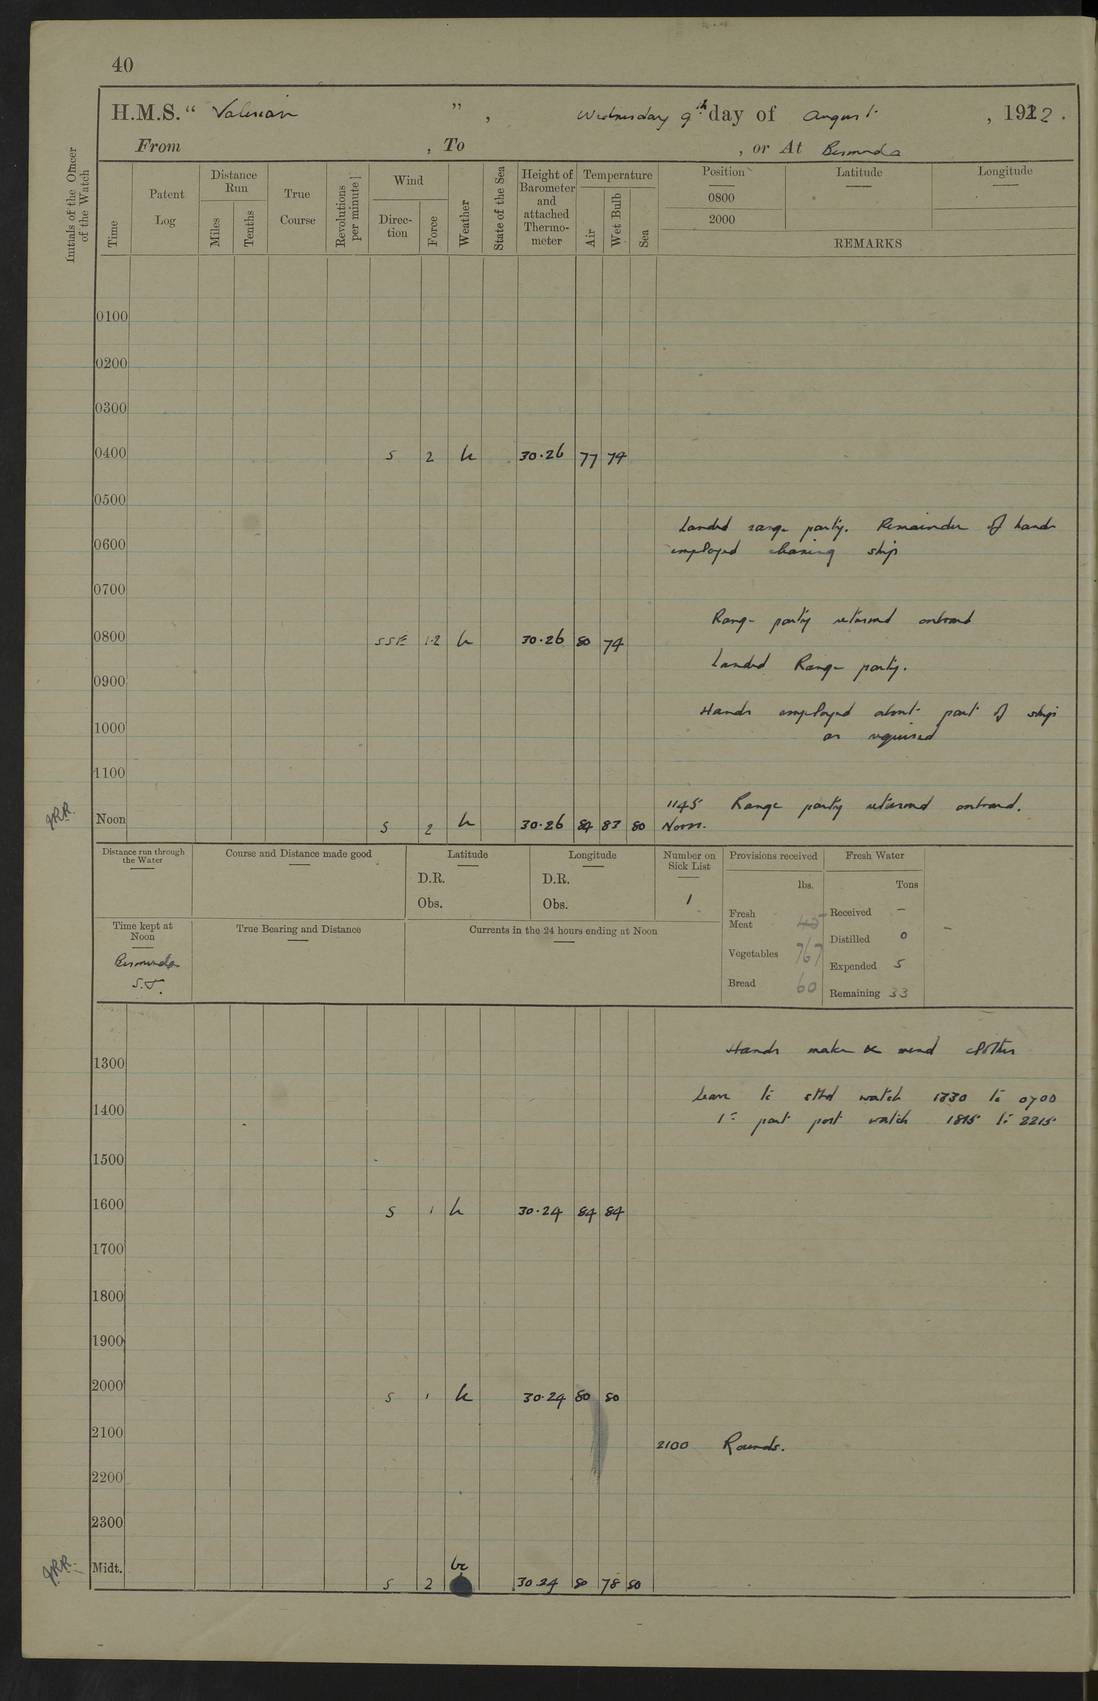 40
H.M.S. “ Valerian ” , Wednesday 9th day of August , 1922 .
From , To , or At Bermuda
Initials of the Officer of the Watch
Time
Patent Log
Distance Run
Miles
Tenths
True Course
Revolutions per minute
Wind
Direc-tion
Force
Weather
State of the Sea
Height of Barometer and attached Thermo-meter
Temperature
Air
Wet Bulb
Sea
Position
Latitude
Longitude
0800
2000
REMARKS
0100
0200
0300
0400 S 2 b 30.26 77 74
0500
Landed range party. Remainder of hands
0600 employed cleaning ship
0700
Range party returned onboard
0800 SSE 1.2 b 30.26 80 74
Landed Range party.
0900
Hands employed about part of ship
1000 as required
1100
1145 Range party returned onboard.
JRR. Noon S 2 b 30.26 84 83 80 Noon.
Distance run through the Water
Course and Distance made good
Latitude
D.R.
Obs.
Longitude
D.R.
Obs.
Number on Sick List
1
Provisions received
lbs.
Fresh Meat 45
Vegetables 767
Bread 60
Fresh Water
Tons
Received –
Distilled 0
Expended 5
Remaining 33
Time kept at Noon
Bermuda
S.T.
True Bearing and Distance
Currents in the 24 hours ending at Noon
Hands make & mend clothes
1300
Leave to stbd watch 1330 to 0700
1400 1st part port watch 1815 to 2215
1500
1600 S 1 b 30.24 84 84
1700
1800
1900
2000 S 1 b 30.24 80 80
2100 2100 Rounds.
2200
2300
JRR. Midt. S 2 bc 30.24 80 78 80